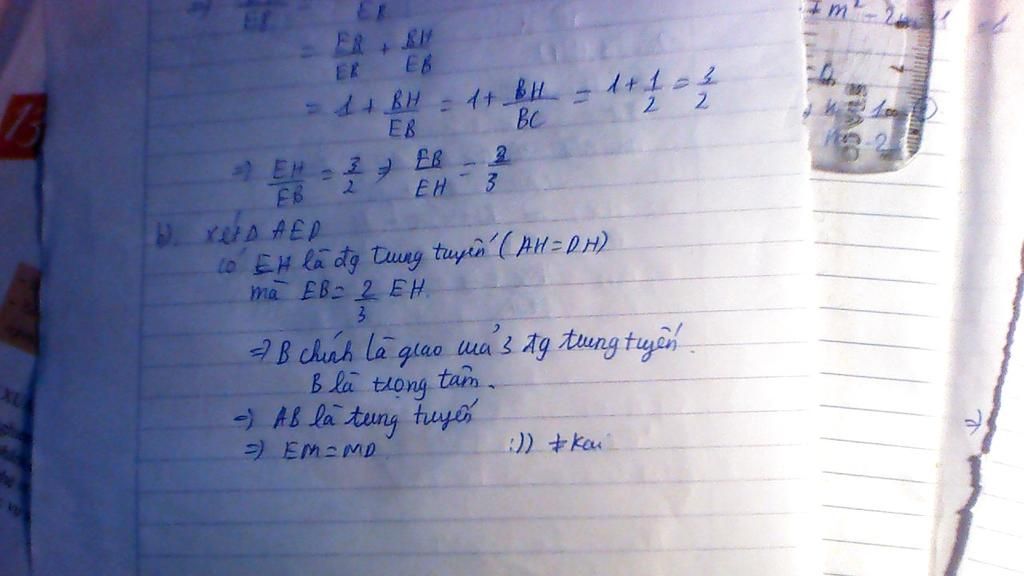 ⇒ EB = EB
= EB/EB + BH/EB
= 1 + BH/EB = 1 + BH/BC = 1 + 1/2 = 3/2
⇒ EH/EB = 3/2 ⇒ EB/EH = 2/3
b). xét Δ AED
có EH là đg trung tuyến (AH = DH)
mà EB = 2/3 EH.
⇒ B chính là giao của 3 đg trung tuyến.
B là trọng tâm.
⇒ AB là trung tuyến
⇒ EM = MD :)) #Kai
STACO
⇒